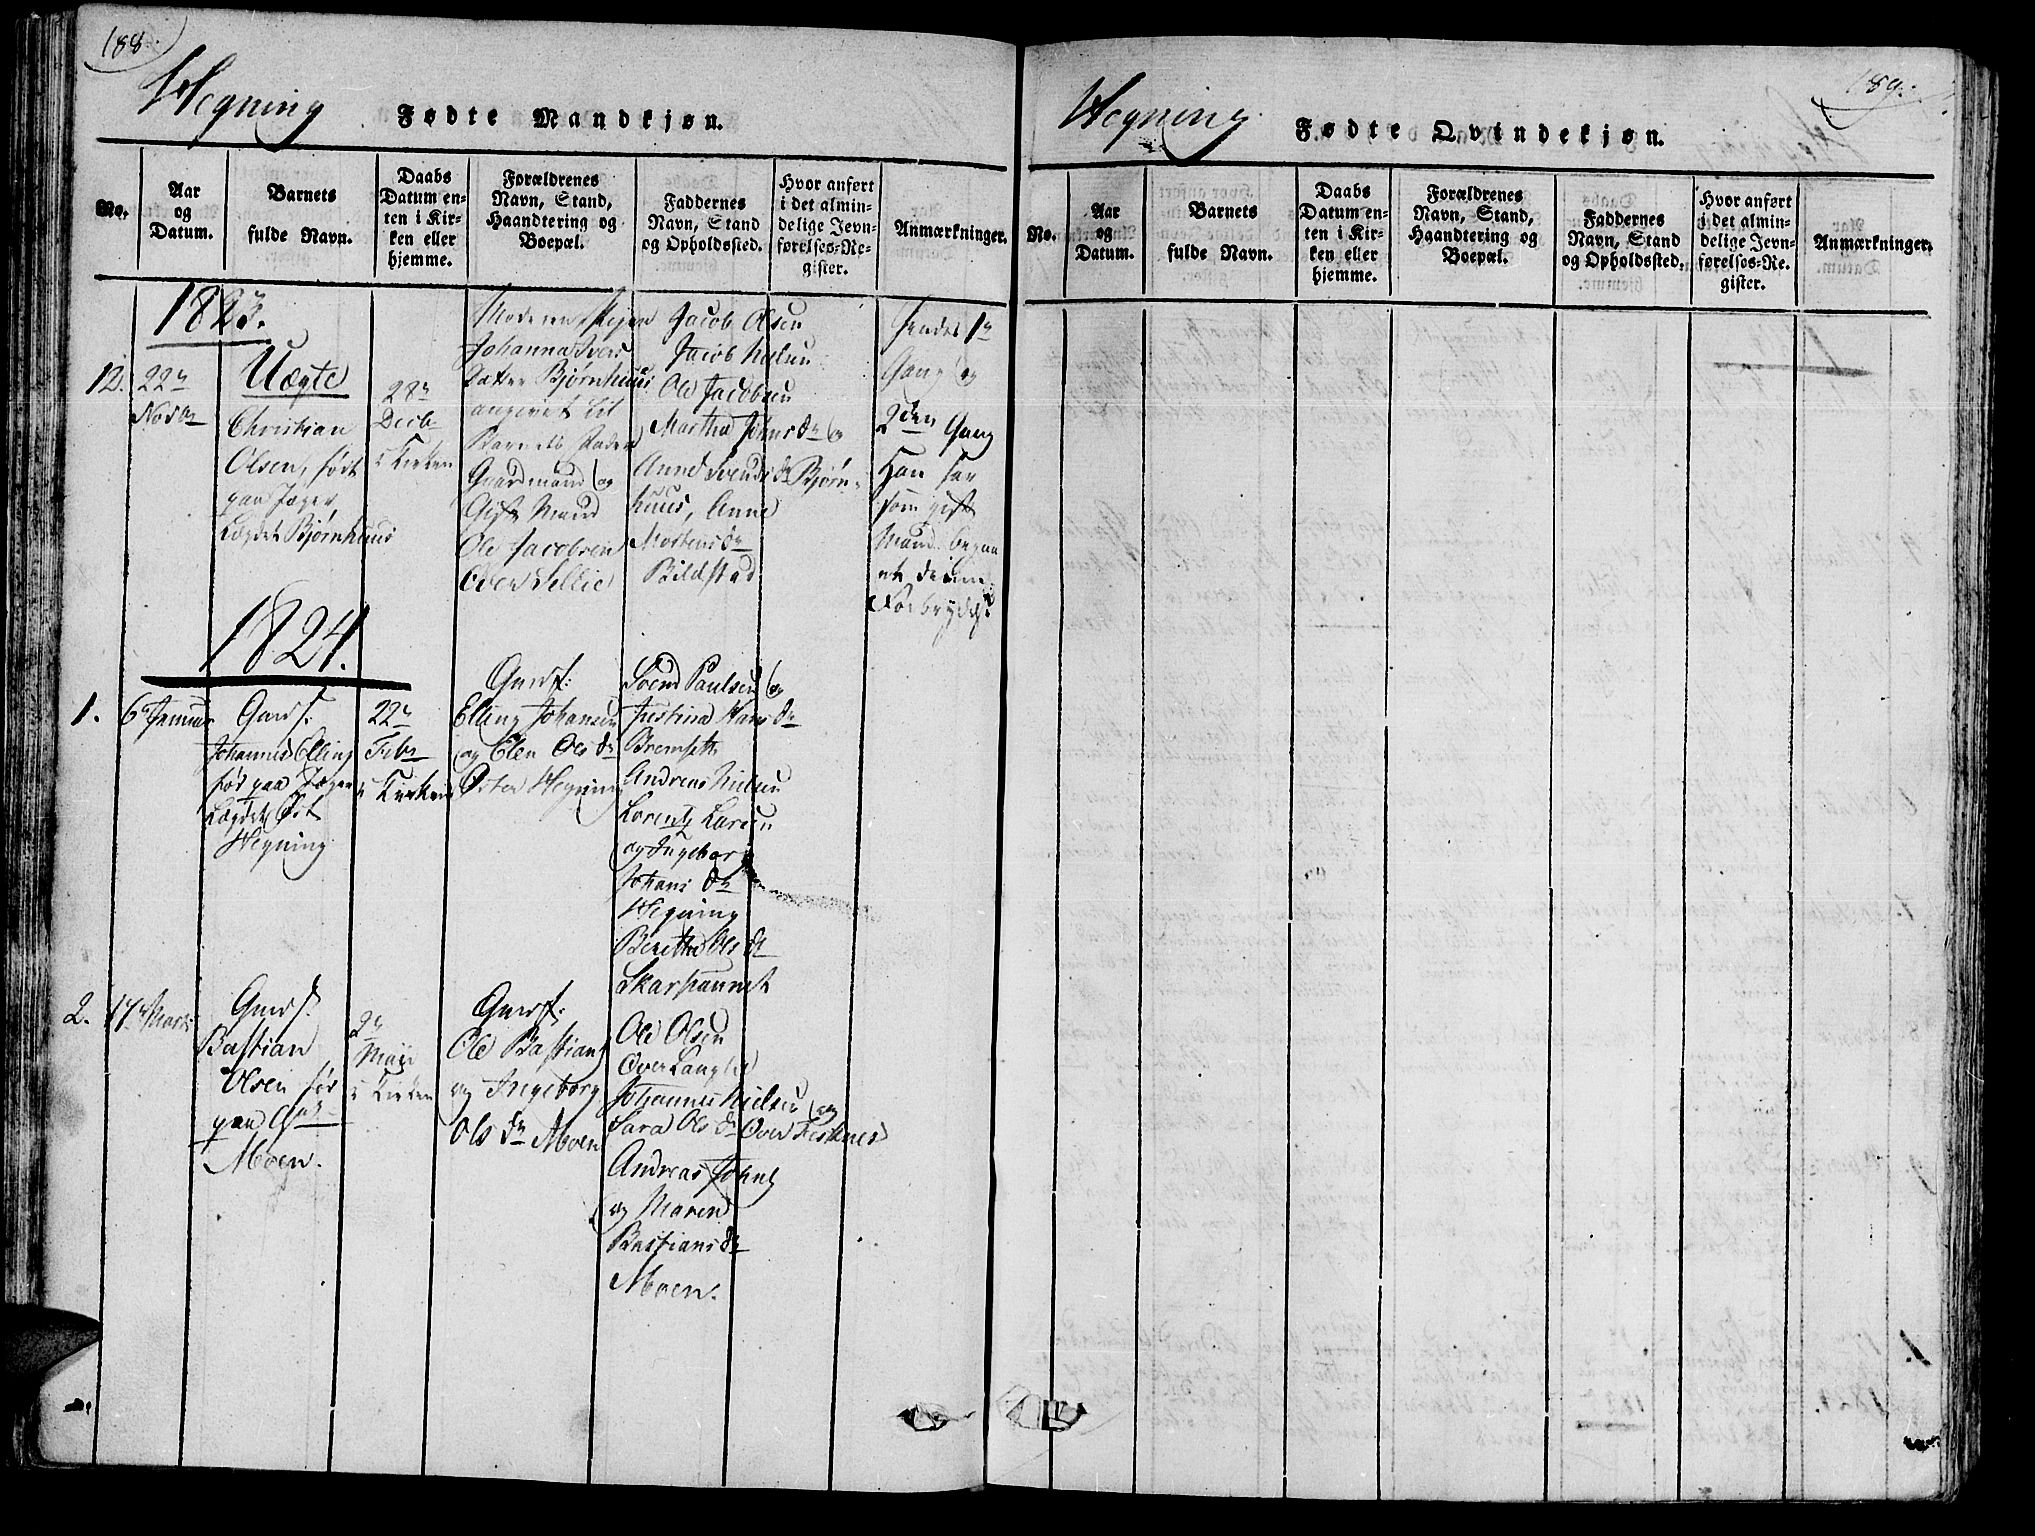 188.
Hegning Fødte Mandkjøn.
No.
Aar
og
Datum.
Barnets
fulde Navn.
Daabs
Datum en-
ten i Kir-
ken eller
hjemme.
Forældrenes
Navn, Stand,
Haandtering og
Boepæl.
Faddernes
Navn, Stand
og Opholdssted.
Hvor anført
i det almin-
delige Jevn-
førelses-Re-
gister.
Anmærkninger.
1823.
12.
22n
Novbr
Uægte
Christian
Olsen, født
paa Jæger
Lægdet Bjørnhuus
28n
Decbr
i Kirken
Moderen, Pigen
Johanna Ivers
Datter Bjørnhuus
angivet til
Barnets Fader
Gaardmand og
Gift Mand
Ole Jacobsen
Over Sellie
Jacob Olsen
Jacob
Ole Jacobsen
Martha Johnsdr og
Anne Svendsdr Bjørn-
huus, Anne
Mortensdr
Bildstad
hendes 1n
Gang og
2den Gang
Han har
som gift
Mand begaa
et denne
Forbrydelse
1824.
1.
6n Januar
Gmdf:
Johannes Elling
fød paa Jæger
Lægdet Øst
Hegning
22n
Febr
i Kirken
Gmdf:
Elling Johansen
og Elen Olsdr
Øster Hegning
Svend Paulsen og
Justina Hansdr
Bremseth
Andreas Nielsen
Lorentz Larsen
og Ingebor
Johansdr
Hegning
Beretha Olsdr
Skarpaunet
2.
17n Marts
Gmdf:
Bastian
Olsen fød
paa Gdr
Moen.
2n
Maii
i Kirken
Gmdf:
Ole Bastians
og Ingeborg
Olsdr Moen
Ole Olsen
Over Langlie
Johannes Nielsen og
Sara Olsdr Over Fiesknes
Andreas Johns
og Maren
Bastiansdr
Moen.
189.
Hegning Fødte Qvindekjøn.
No.
Aar
og
Datum.
Barnets
fulde Navn.
Daabs
Datum en-
ten i Kir-
ken eller
hjemme.
Forældrenes
Navn, Stand,
Haandtering og
Boepæl.
Faddernes
Navn, Stand
og Opholdssted.
Hvor anført
i det almin-
delige Jevn-
førelses-Re-
gister.
Anmærkninger.